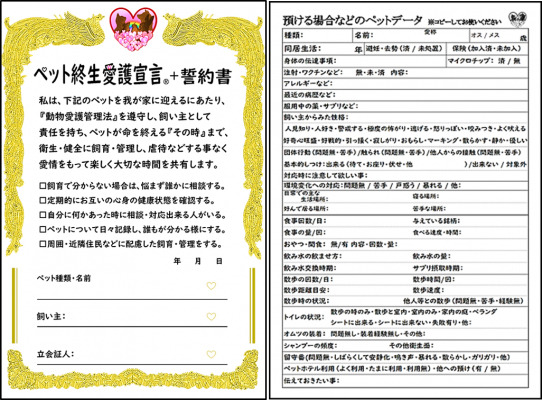 ペット終生愛護宣言®+誓約書
私は、下記のペットを我が家に迎えるにあたり、
『動物愛護管理法』を遵守し、飼い主として
責任を持ち、ペットが命を終える『その時』まで、
衛生・健全に飼育・管理し、虐待などする事なく
愛情をもって楽しく大切な時間を共有します。
□飼育で分からない場合は、悩まず誰かに相談する。
□定期的にお互いの心身の健康状態を確認する。
□自分に何かあった時に相談・対応出来る人がいる。
□ペットについて日々記録し、誰もが分かる様にする。
□周囲・近隣住民などに配慮した飼育・管理をする。
年 月 日
ペット種類・名前
飼い主:
立会証人:
預ける場合などのペットデータ ※コピーしてお使いください
種類: 名前: 愛称 オス / メス 歳
同居生活: 年 避妊・去勢 (済 / 未処置) 保険 (加入済・未加入)
身体の伝達事項: マイクロチップ: 済 / 無
注射・ワクチンなど: 無・未・済 内容:
アレルギーなど:
最近の病歴など:
服用中の薬・サプリなど:
飼い主からみた性格:
人見知り・人好き・警戒する・極度の怖がり・逃げる・怒りっぽい・咬みつき・よく吠える
好奇心旺盛・好戦的・引っ掻く・寂しがり・おもらし・マーキング・散らかす・静か・優しい
団体行動 (問題無・苦手) / 触られる (問題無・苦手) / 他人からの接触 (問題無・苦手)
基本的しつけ:出来る (待て・お座り・伏せ・他 ) /出来ない / 対象外
対応時に注意して欲しい事:
環境変化への対応:問題無 / 苦手 / 戸惑う / 暴れる / 他:
日常での主な生活場所: 寝る場所:
好んで居る場所: 苦手な場所:
食事回数/日: 与えている銘柄:
食事の量/回: 食べる速度・時間:
おやつ・間食: 無/有 内容・回数・量:
飲み水の飲ませ方: 飲み水の量:
飲み水交換時期: サプリ摂取時期:
散歩の回数/日: 散歩時間/回:
散歩距離目安: 散歩速度:
散歩時の状況: 他人等との散歩 (問題無・苦手・経験無)
トイレの状況: 散歩の時のみ・散歩と室内・室内のみ・家内の庭・ベランダ
シートに出来る・シートに出来ない・失敗有り・他:
オムツの装着: 問題無し・装着経験無し・その他:
シャンプーの頻度: その他衛生面:
留守番 (問題無・しばらくして安静化・鳴き声・暴れる・散らかし・ガリガリ・他)
ペットホテル利用 (よく利用・たまに利用・利用無)・他への預け (有 / 無)
伝えておきたい事: